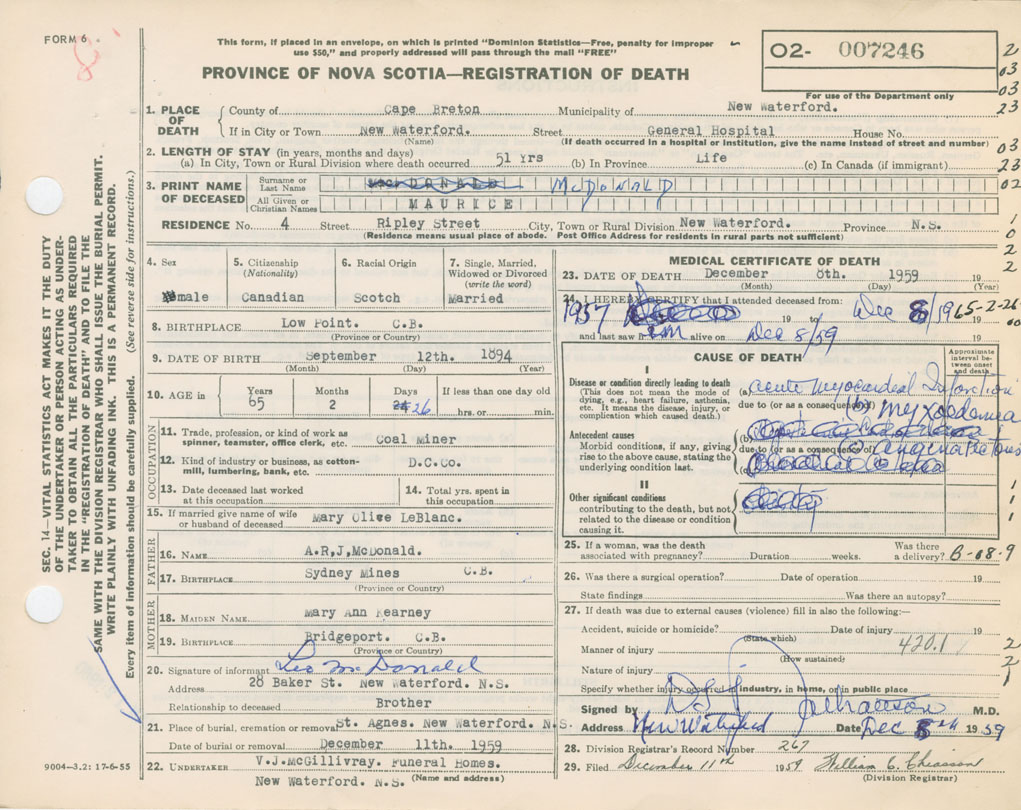 FORM 6
This form, if placed in an envelope, on which is printed "Dominion Statistics—Free, penalty for improper
use $50," and properly addressed will pass through the mail "FREE"
PROVINCE OF NOVA SCOTIA—REGISTRATION OF DEATH
02- 007246
For use of the Department only
2
03
03
23
03
23
02
1
0
2
2
1. PLACE OF DEATH
County of Cape Breton Municipality of New Waterford.
If in City or Town New Waterford. Street General Hospital House No.
(Name) (If death occurred in a hospital or institution, give the name instead of street and number)
2. LENGTH OF STAY (in years, months and days)
(a) In City, Town or Rural Division where death occurred 51 Yrs (b) In Province Life (c) In Canada (if immigrant)
3. PRINT NAME OF DECEASED
Surname or Last Name McDONALD McDONALD
All Given or Christian Names MAURICE
RESIDENCE No. 4 Street Ripley Street City, Town or Rural Division New Waterford. Province N.S.
(Residence means usual place of abode. Post Office Address for residents in rural parts not sufficient)
4. Sex male
5. Citizenship (Nationality) Canadian
6. Racial Origin Scotch
7. Single, Married, Widowed or Divorced (write the word) Married
8. BIRTHPLACE Low Point. C.B.
(Province or Country)
9. DATE OF BIRTH September 12th. 1894
(Month) (Day) (Year)
10. AGE in Years 65 Months 2 Days 26 If less than one day old hrs. or min.
OCCUPATION
11. Trade, profession, or kind of work as spinner, teamster, office clerk, etc. Coal Miner
12. Kind of industry or business, as cotton-mill, lumbering, bank, etc. D.C.Co.
13. Date deceased last worked at this occupation
14. Total yrs. spent in this occupation
15. If married give name of wife or husband of deceased Mary Olive LeBlanc.
FATHER
16. NAME A.R,J,McDonald.
17. BIRTHPLACE Sydney Mines C.B.
(Province or Country)
MOTHER
18. MAIDEN NAME Mary Ann Kearney
19. BIRTHPLACE Bridgeport. C.B.
(Province or Country)
20. Signature of informant Leo McDonald
Address 28 Baker St. New Waterford. N.S.
Relationship to deceased Brother
21. Place of burial, cremation or removal St. Agnes. New Waterford. N.S.
Date of burial or removal December 11th. 1959
22. UNDERTAKER V.J.McGillivray. Funeral Homes.
(Name and address)
New Waterford. N.S.
MEDICAL CERTIFICATE OF DEATH
23. DATE OF DEATH December 8th. 1959 19
(Month) (Day) (Year)
24. I HEREBY CERTIFY that I attended deceased from:
1957 19 to Dec 8/59 19
65-2-26
00
and last saw him alive on Dec 8/59 19
CAUSE OF DEATH
Approximate interval between onset and death
I
Disease or condition directly leading to death
(This does not mean the mode of dying, e.g., heart failure, asthenia, etc. It means the disease, injury, or complication which caused death.)
(a) acute myocardeal Infarction
due to (or as a consequence of)
(b) myxoedemea
Antecedent causes
Morbid conditions, if any, giving rise to the above cause, stating the underlying condition last.
due to (or as a consequence of)
angina Pectoris
II
Other significant conditions
contributing to the death, but not related to the disease or condition causing it.
1
1
1
25. If a woman, was the death associated with pregnancy? Duration weeks. Was there a delivery?
B-08-9
26. Was there a surgical operation? Date of operation 19
State findings Was there an autopsy?
27. If death was due to external causes (violence) fill in also the following:—
Accident, suicide or homicide? Date of injury 19
(State which)
Manner of injury 420.1
(How sustained)
Nature of injury
2
2
1
Specify whether injury occurred in industry, in home, or in public place
Signed by M.D.
Address New Waterford Date Dec 8th 1959
28. Division Registrar's Record Number 267
29. Filed December 11th 1959 William C. Chiasson
(Division Registrar)
SEC. 14—VITAL STATISTICS ACT MAKES IT THE DUTY
OF THE UNDERTAKER OR PERSON ACTING AS UNDER-
TAKER TO OBTAIN ALL THE PARTICULARS REQUIRED
IN THE "REGISTRATION OF DEATH" AND TO FILE THE
SAME WITH THE DIVISION REGISTRAR WHO SHALL ISSUE THE BURIAL PERMIT.
WRITE PLAINLY WITH UNFADING INK. THIS IS A PERMANENT RECORD.
Every item of information should be carefully supplied. (See reverse side for instructions.)
9004-3.2: 17-6-55